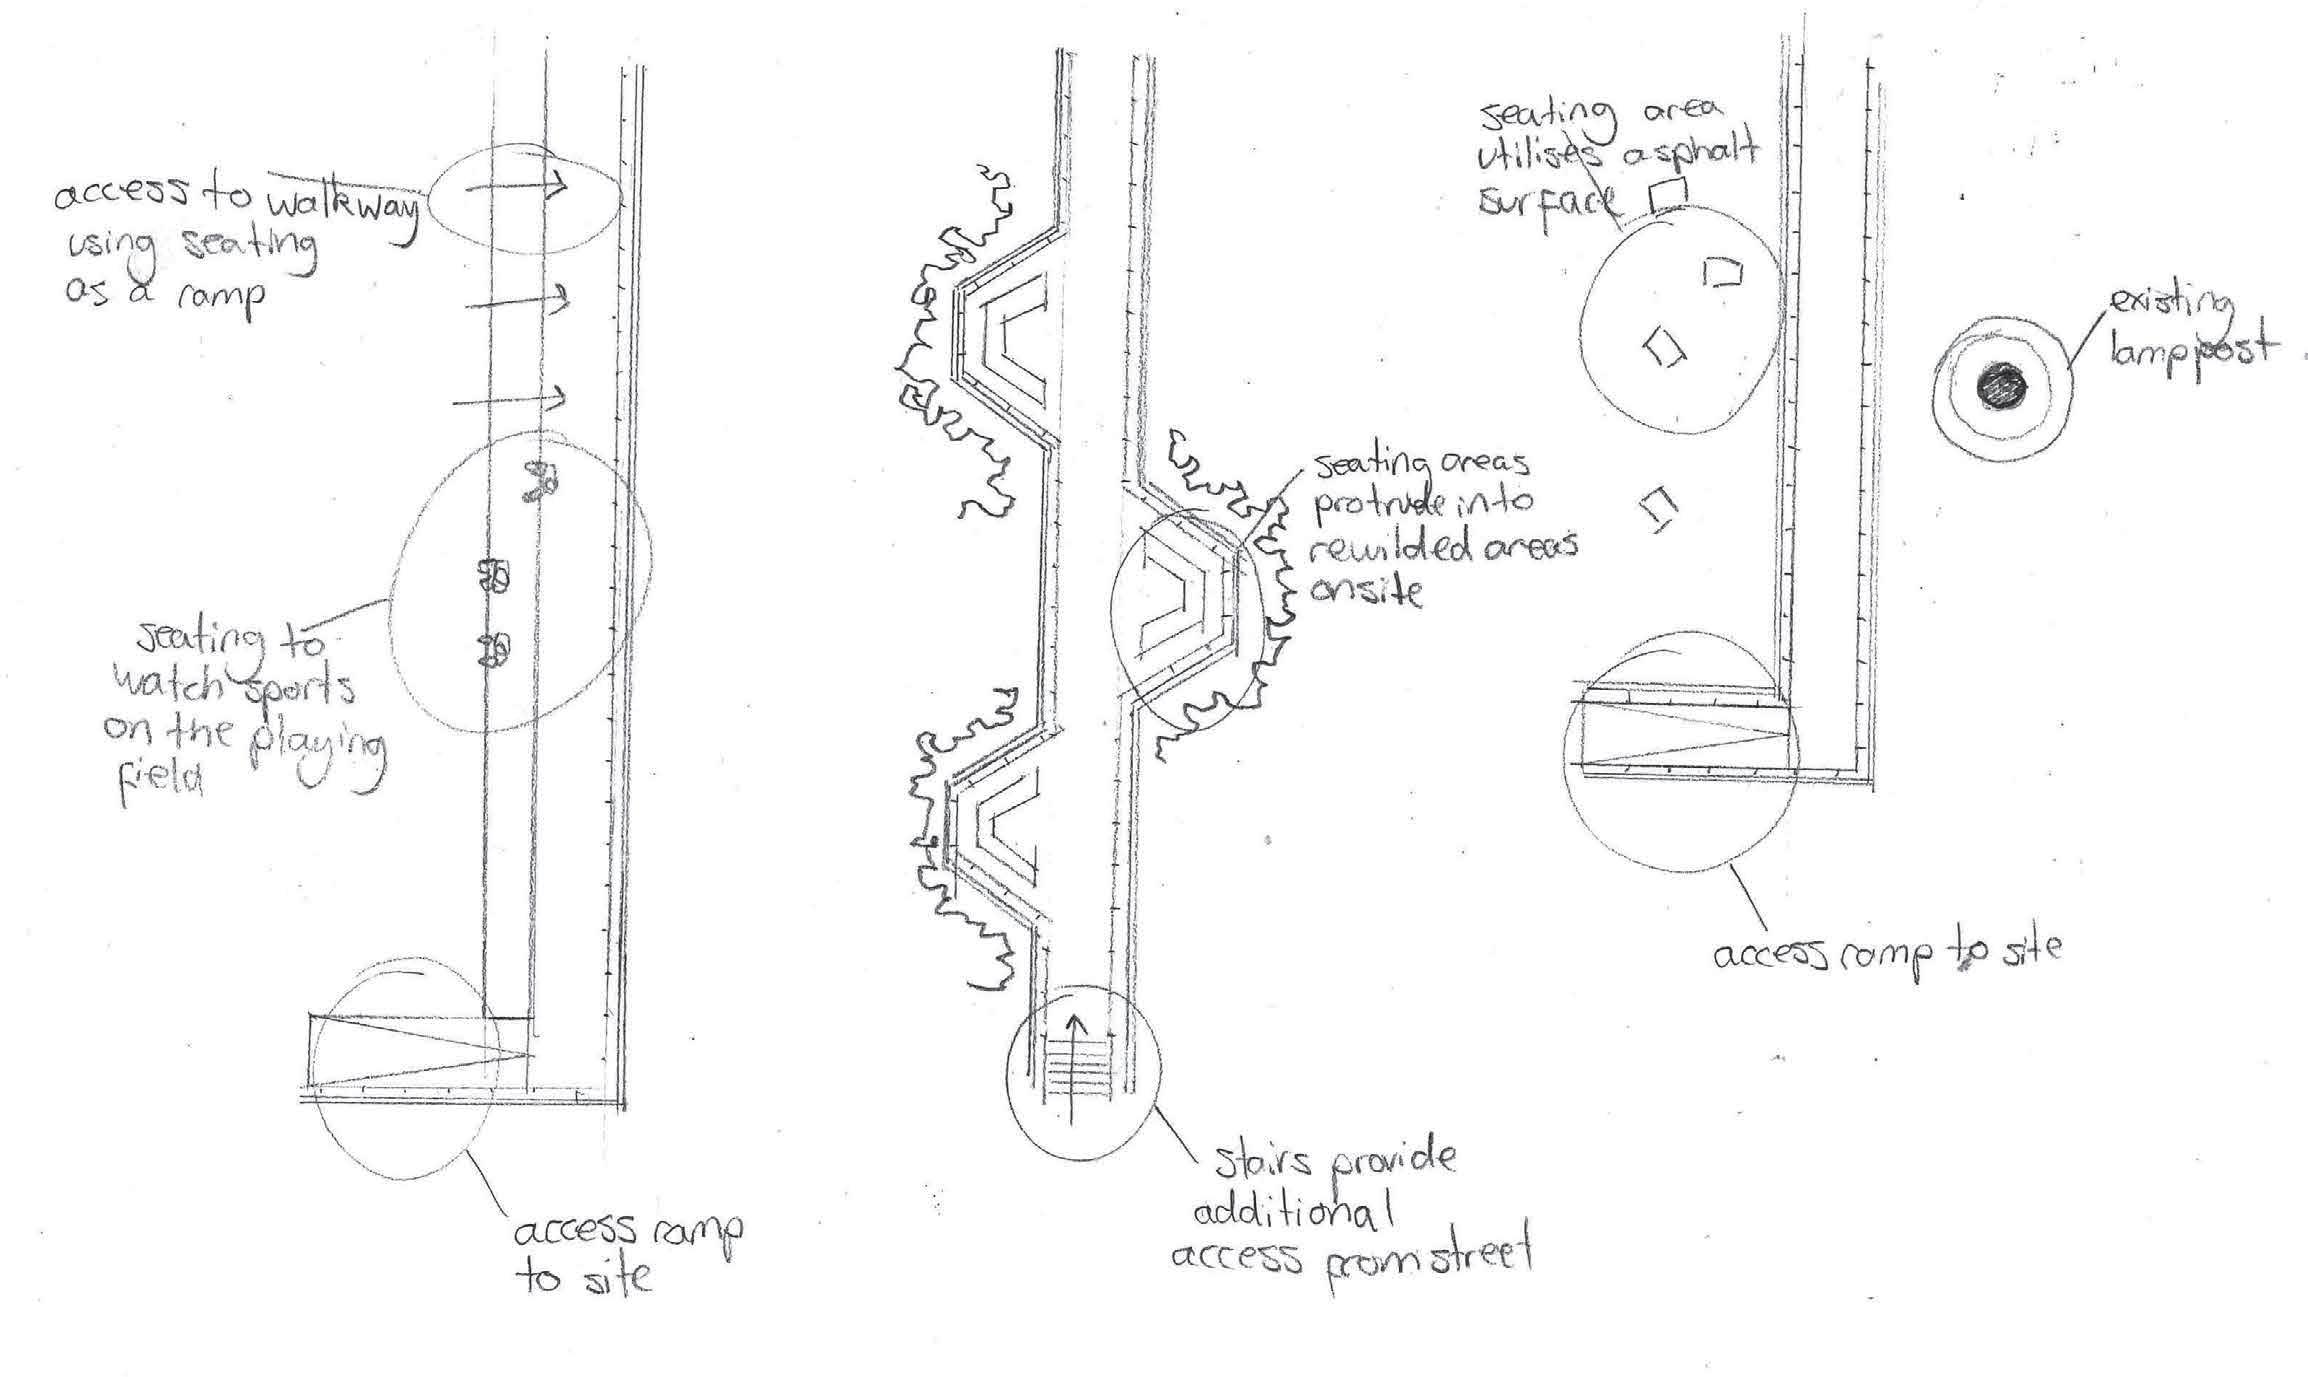 access to walkway
using seating
as a ramp
seating to
watch sports
on the playing
field
access ramp
to site
seating areas
protrude into
rewilded areas
onsite
stairs provide
additional
access from street
seating area
utilises asphalt
surface
existing
lamppost
access ramp to site